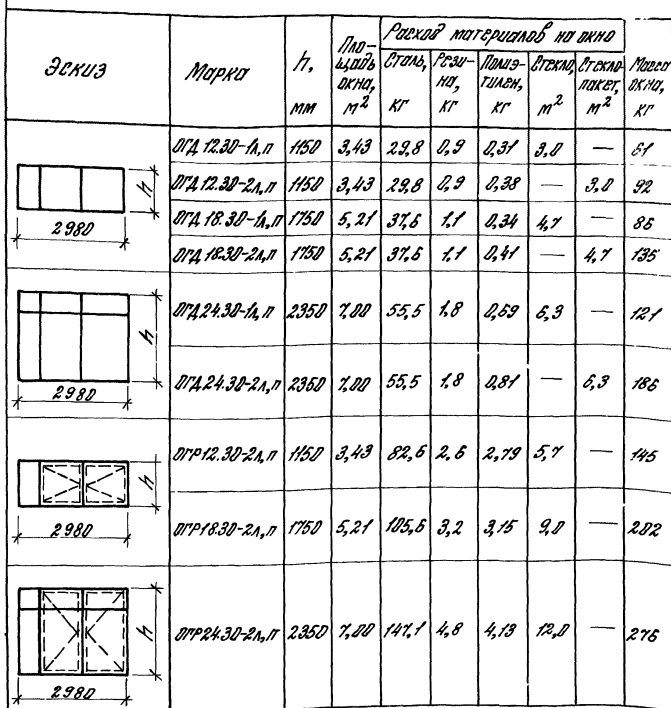 Эскиз Марка h, мм Площадь окна, м² Расход материалов на окно Масса окна, кг
Сталь, кг Резина, кг Полиэтилен, кг Стекло, м² Стеклопакет, м²
ОГД 12.30-1л,п 1150 3,43 29,8 0,9 0,31 3,0 — 61
ОГД 12.30-2л,п 1150 3,43 29,8 0,9 0,38 — 3,0 92
h
2980
ОГД 18.30-1л,п 1750 5,21 37,6 1,1 0,34 4,7 — 86
ОГД 18.30-2л,п 1750 5,21 37,6 1,1 0,41 — 4,7 135
ОГД 24.30-1л,п 2350 7,00 55,5 1,8 0,69 6,3 — 121
h
2980
ОГД 24.30-2л,п 2350 7,00 55,5 1,8 0,81 — 6,3 186
ОГР 12.30-2л,п 1150 3,43 82,6 2,6 2,79 5,7 — 145
h
2980
ОГР 18.30-2л,п 1750 5,21 105,6 3,2 3,15 9,0 — 202
ОГР 24.30-2л,п 2350 7,00 147,1 4,8 4,13 12,0 — 276
h
2980